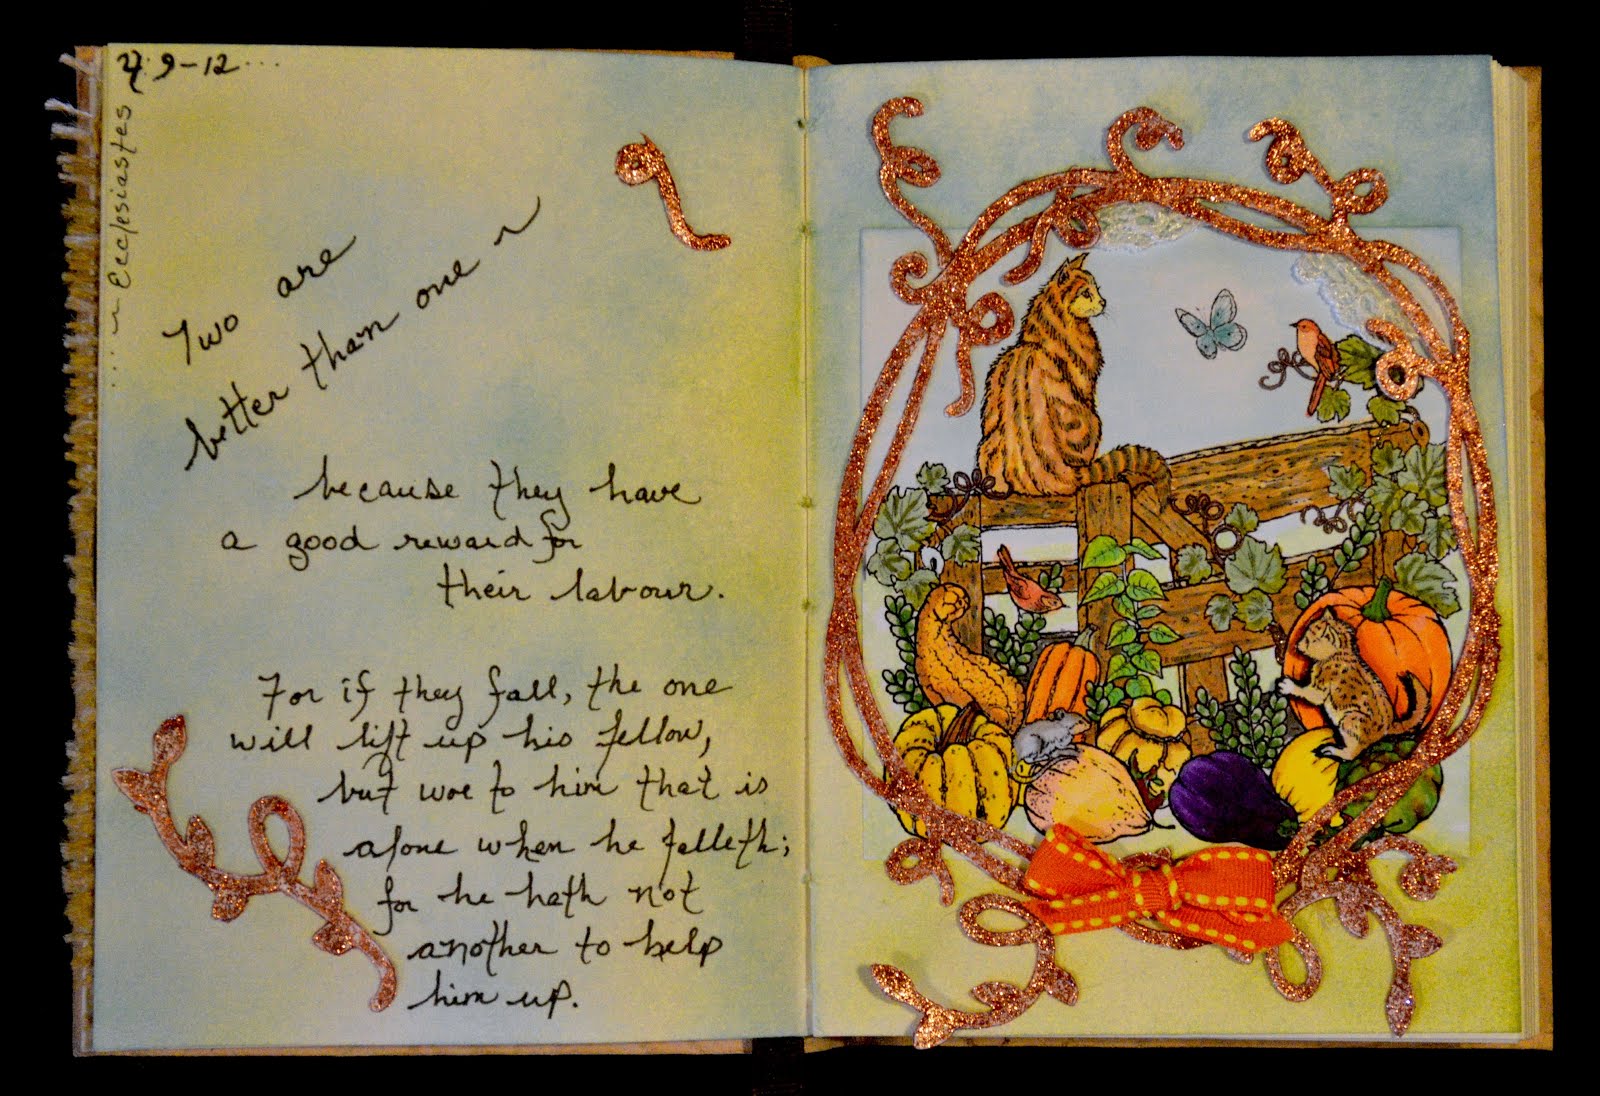 ... ~ Ecclesiastes 4:9-12...
Two are
better than one ~
because they have
a good reward for
their labour.
For if they fall, the one
will lift up his fellow,
but woe to him that is
alone when he falleth;
for he hath not
another to help
him up.